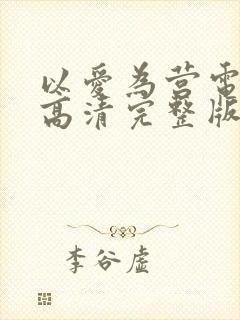 以爱為营電
高清完整版
李谷虚